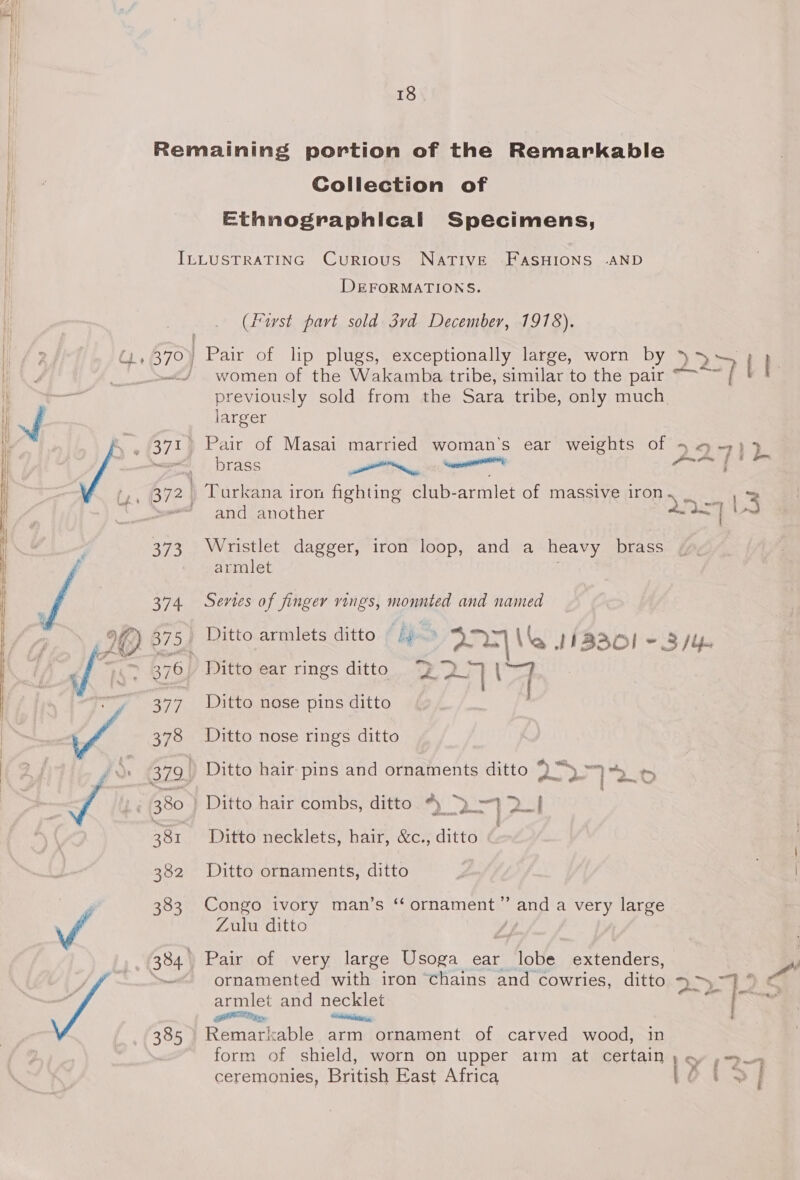 18
Remaining portion of the Remarkable
Collection of
Ethnographical Specimens,
ILLUSTRATING CURIOUS NATIVE FASHIONS AND
DEFORMATIONS.
(First part sold 3rd December, 1918).
370 Pair of lip plugs, exceptionally large, worn by
women of the Wakamba tribe, similar to the pair
previously sold from the Sara tribe, only much
larger
371 Pair of Masai married woman's ear weights of
brass
372 Turkana iron fighting club-armlet of massive iron
and another
373 Wristlet dagger, iron loop, and a heavy brass
armlet
374 Series of finger rings, mounted and named
375 Ditto armlets ditto
376 Ditto ear rings ditto
377 Ditto nose pins ditto
378 Ditto nose rings ditto
379 Ditto hair pins and ornaments ditto
380 Ditto hair combs, ditto
381 Ditto necklets, hair, &c., ditto
382 Ditto ornaments, ditto
383 Congo ivory man's “ornament” and a very large
Zulu ditto
384 Pair of very large Usoga ear lobe extenders,
ornamented with iron chains and cowries, ditto
armlet and necklet
385 Remarkable arm ornament of carved wood, in
form of shield, worn on upper arm at certain
ceremonies, British East Africa